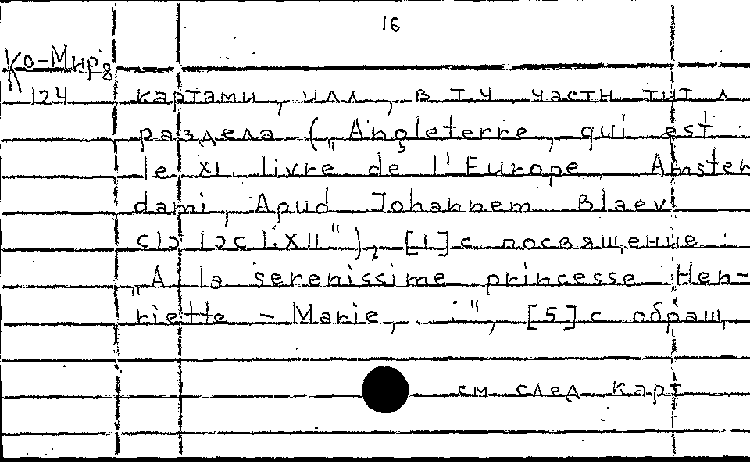 16
Ко-Мир8
124
картами, илл, в т.ч. части тит л
раздела („Angleterre, qui est
le XI livre de l'Europe, Amster
dami, Apud Iohannem Blaev
CIↃ IↃC LXII"), [1] с посвящение:
„A la serenissime princesse Hen-
riette - Marie, ...", [5] с обращ,
см след карт